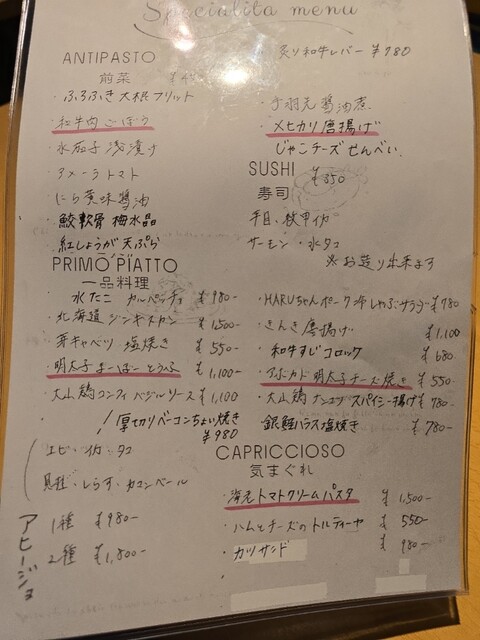 Specialita menu
ANTIPASTO
前菜
・ふろふき大根フリット
・和牛肉ごぼう
・水茄子 浅漬け
・アメーラトマト
・にら黄味醤油
・鮫軟骨 梅水晶
・紅しょうが天ぷら
・炙り和牛レバー ¥780
・手羽先 醤油煮
・メヒカリ唐揚げ
じゃこチーズせんべい
SUSHI
寿司 ¥350
平目、紋甲イカ
サーモン・水タコ
※お造り出来ます
PRIMO PIATTO
一品料理
・水たこ カルパッチョ ¥980-
・北海道 ジンギスカン ¥1,500-
・芽キャベツ 塩焼き ¥550-
・明太子まーぼーとうふ ¥1,100-
・大山鶏コンフィ バジルソース ¥1,100
・厚切りベーコンちょい焼き
¥980
・HARUちゃんポーク冷しゃぶサラダ ¥780
・きんき 唐揚げ ¥1,100
・和牛すじコロッケ ¥680-
・アボカド 明太子チーズ焼き ¥550
・大山鶏 ナンコツ スパイシー揚げ ¥780-
・銀鮭ハラス塩焼き ¥780-
エビ・イカ・タコ
・しらす・カマンベール
1種 ¥980-
2種 ¥1,800-
アヒージョ
CAPRICCIOSO
気まぐれ
・海老トマトクリームパスタ ¥1,500-
・ハムとチーズのトルティーヤ ¥550-
・カツサンド ¥980-